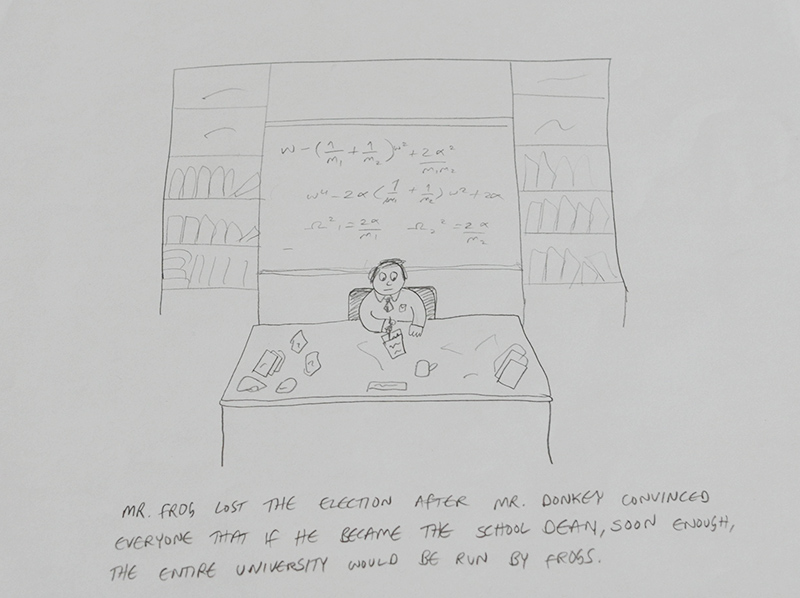 W - (1/m₁ + 1/m₂) ω² + 2α²/m₁m₂
ω⁴ - 2α (1/m₁ + 1/m₂) ω² + 2α
Ω²₁ = 2α/m₁ Ω₂² = 2α/m₂
MR. FROG LOST THE ELECTION AFTER MR. DONKEY CONVINCED
EVERYONE THAT IF HE BECAME THE SCHOOL DEAN, SOON ENOUGH,
THE ENTIRE UNIVERSITY WOULD BE RUN BY FROGS.